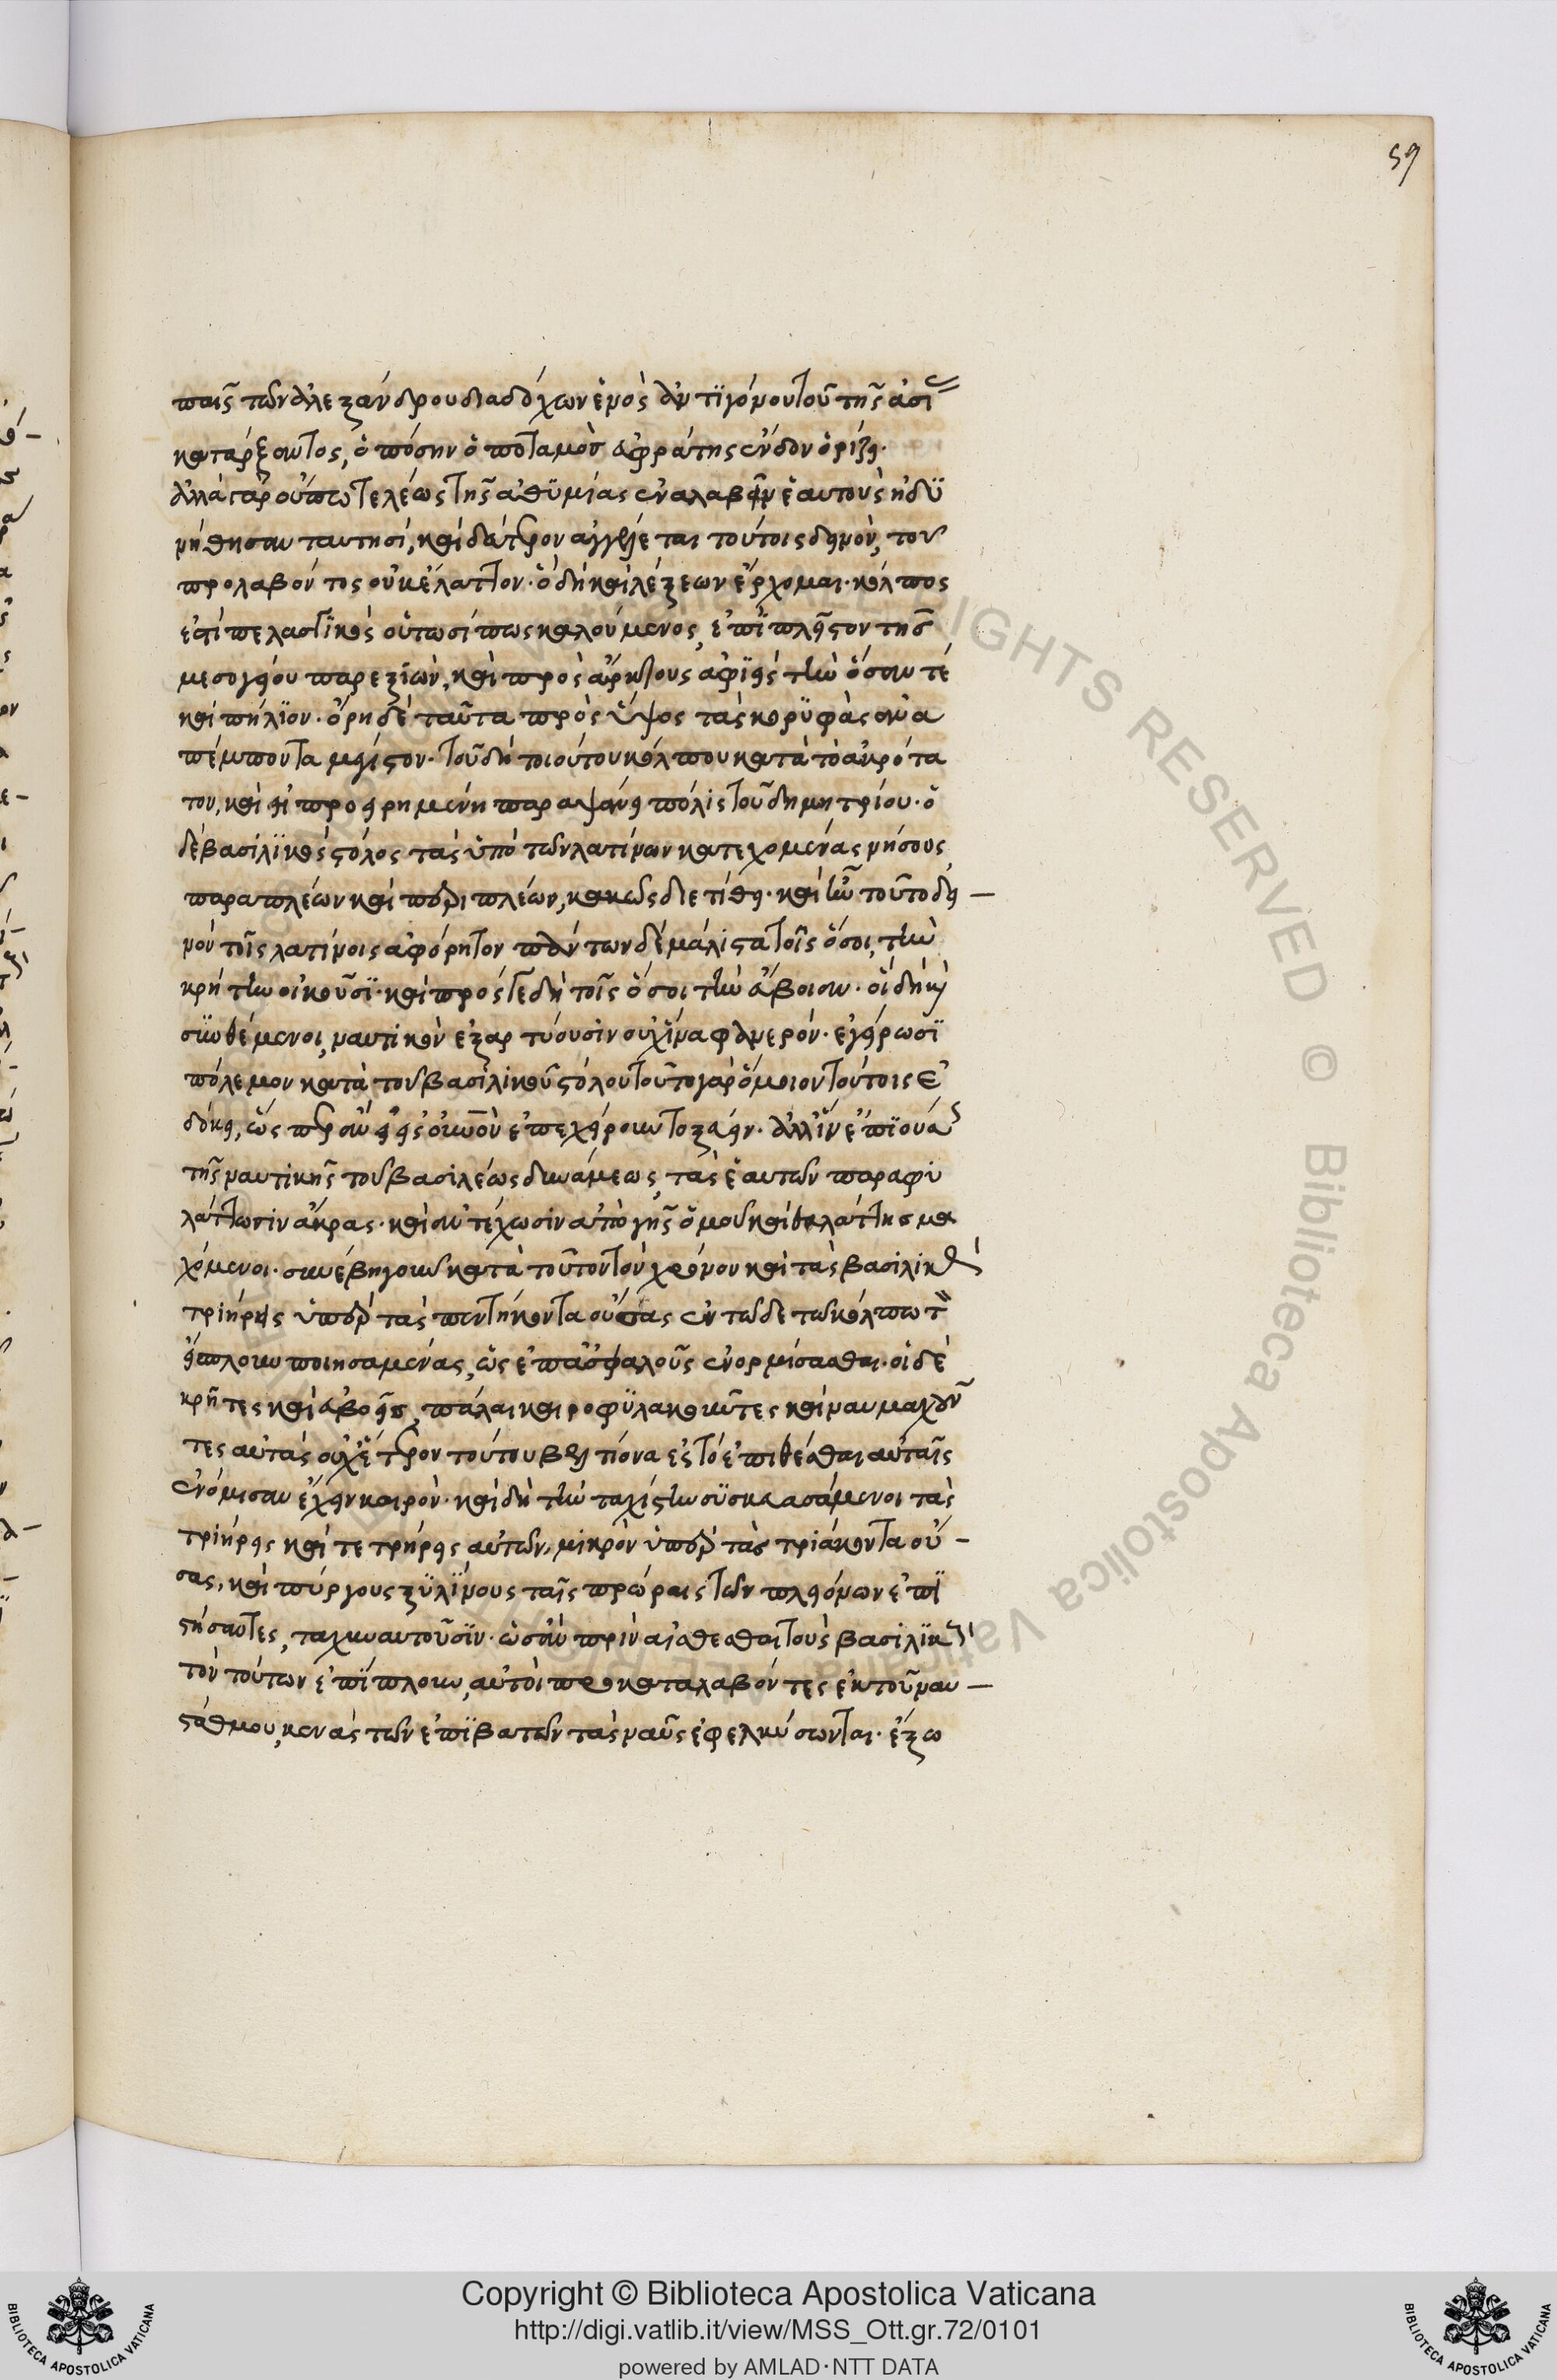 59
παῖς τῶν ἀλεξάνδρου διαδόχων ἑνὸς ἀντιγόνου τοῦ τῆς ἀσί
κατάρξαντος, ὁπόσην ὁ ποταμὸς εὐφράτης ἔνδον ὁρίζει.
ἀλλὰ γὰρ οὔπω τελέως τῆς ἀθυμίας ἀναλαβεῖν ἑαυτοὺς ἠδυ
νήθησαν ταυτησί, καὶ δεύτερον ἀγγέλλεται τούτοις δεινόν, τοῦ
προλαβόντος οὐκ ἔλαττον. ὃ δὴ καὶ λέξων ἔρχομαι. κόλπος
ἐστὶ πελασγικὸς οὑτωσί πως καλούμενος, ἐπὶ πλεῖστον τῆς
μεσογείου παρεξιών, καὶ πρὸς ἄρκτους ἀφιεὶς τὴν ὄσσαν τε
καὶ πήλιον. ὄρη δὲ ταῦτα πρὸς ὕψος τὰς κορυφὰς ἀνα
πέμποντα μέγιστον. τοῦ δὴ τοιούτου κόλπου κατὰ τὸ ἀκρότα
τον, καὶ ἡ προειρημένη παραψαύει πόλις τοῦ δημητρίου. ὁ
δὲ βασιλικὸς στόλος τὰς ὑπὸ τῶν λατίνων κατεχομένας νήσους
παραπλέων καὶ περιπλέων, κακῶς διετίθει. καὶ ἦν τοῦτο δει-
νὸν τοῖς λατίνοις ἀφόρητον πάντων δὲ μάλιστα τοῖς ὅσοι, τὴν
κρήτην οἰκοῦσι. καὶ πρός γε δὴ τοῖς ὅσοι τὴν εὔβοιαν. οἳ δὴ καὶ
συνθέμενοι, ναυτικὸν ἐξαρτύουσιν οὐχὶ μὰ φλνερόν. ἐγείρωσι
πόλεμον κατὰ τοῦ βασιλικοῦ στόλου τοῦτο γὰρ ὅμοιον τούτοις ἐ
δόκει, ὡς περ ἂν εἰ εἰς οὐρανὸν ἐπεχείρουν τοξεύειν. ἀλλ' ἵν' ἐπιούσ
τῆς ναυτικῆς τοῦ βασιλέως δυνάμεως, τὰς ἑαυτῶν παραφυ
λάττωσιν ἄκρας. καὶ ἀντέχωσιν ἀπὸ γῆς ὁμοῦ καὶ θαλάττης μα
χόμενοι. συνέβη γοῦν κατὰ τοῦτον τὸν χρόνον καὶ τὰς βασιλικὰς
τριήρεις ὑπὲρ τὰς πεντήκοντα οὔσας ἐν τῷδε τῷ κόλπῳ τὸν
εἴσπλουν ποιησαμένας, ὡς ἐπ' ἀσφαλοῦς ἐνορμίσασθαι. οἱ δὲ
κρῆτες καὶ εὐβοεῖς, πάλαι καιροφυλακοῦντες καὶ ναυμαχοῦν
τες αὐτάς οὐχ ἕτερον τούτου βελτίονα ἐς τὸ ἐπιθέσθαι αὐταῖς
ἐνόμισαν ἔχειν καιρόν. καὶ δὴ τὴν ταχίστην συσκευασάμενοι τὰς
τριήρεις καὶ τετρήρεις αὐτῶν, μικρὸν ὑπὲρ τὰς τριάκοντα οὔ-
σας, καὶ πύργους ξυλίνους ταῖς πρώραις τῶν πλειόνων ἐπι
στήσαντες, ταχυναυτοῦσιν. ὡς ἂν πρὶν αἰσθέσθαι τοὺς βασιλικοὺς
τὸν τούτων ἐπίπλουν, αὐτοὶ προκαταλαβόντες ἐκ τοῦ ναυ-
στάθμου, κενὰς τῶν ἐπιβατῶν τὰς ναῦς ἐφελκύσωνται. ἔξω
Copyright © Biblioteca Apostolica Vaticana
http://digi.vatlib.it/view/MSS_Ott.gr.72/0101
powered by AMLAD·NTT DATA